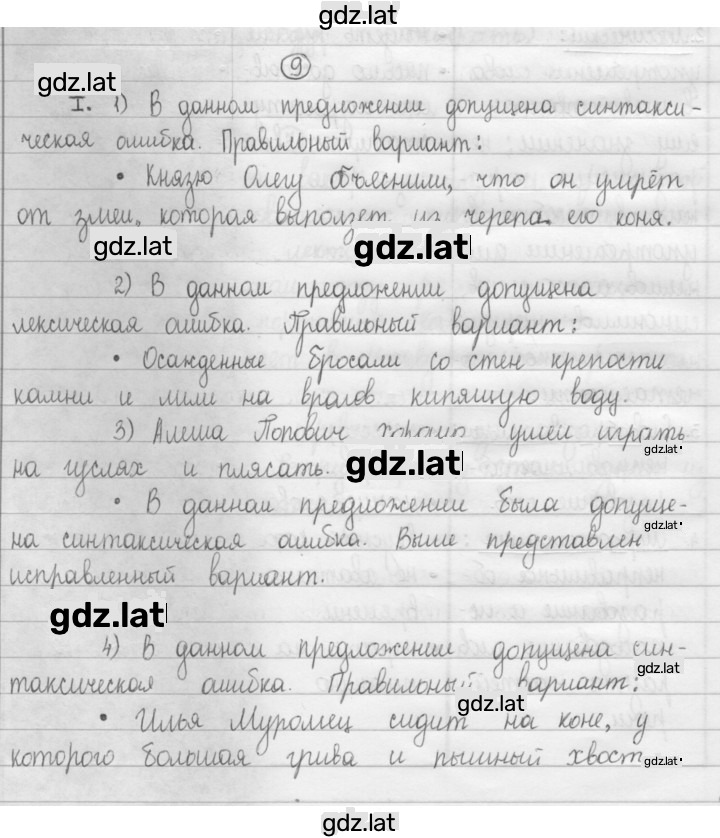 gdz.lat
9
gdz.lat
I. 1) В данном предложении допущена синтакси-
ческая ошибка. Правильный вариант:
• Князю Олегу объяснили, что он умрёт
от змеи, которая выползет из черепа его коня.
gdz.lat gdz.lat
2) В данном предложении допущена
лексическая ошибка. Правильный вариант:
• Осажденные бросали со стен крепости
камни и лили на врагов кипящую воду.
3) Алеша Попович умел играть
gdz.lat
на гуслях и плясать.
gdz.lat
• В данном предложении была допуще-
gdz.lat
на синтаксическая ошибка. Выше представлен
исправленный вариант.
gdz.lat
4) В данном предложении допущена син-
gdz.lat
таксическая ошибка. Правильный вариант:
gdz.lat
• Илья Муромец сидит на коне, у
которого большая грива и пышный хвост
gdz.lat
gdz.lat